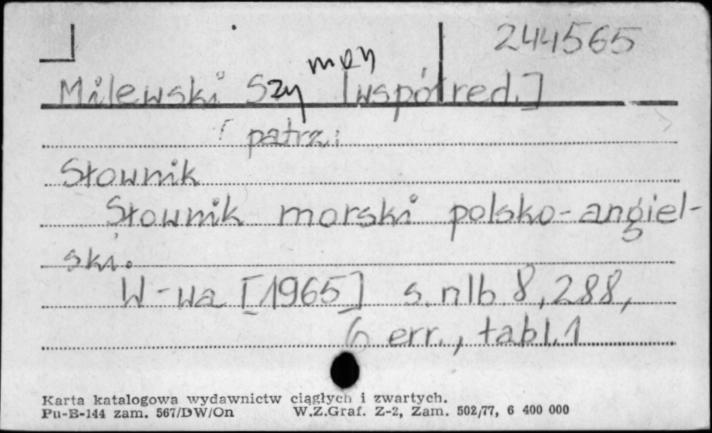 244565
Milewski Szymon [współred.]
patrz:
Słownik
Słownik morski polsko-angiel-
ski.
W-wa [1965] s. nlb 8, 288,
6 err., tabl. 1
Karta katalogowa wydawnictw ciągłych i zwartych.
Pu-B-144 zam. 567/DW/On W.Z.Graf. Z-2, Zam. 502/77, 6 400 000